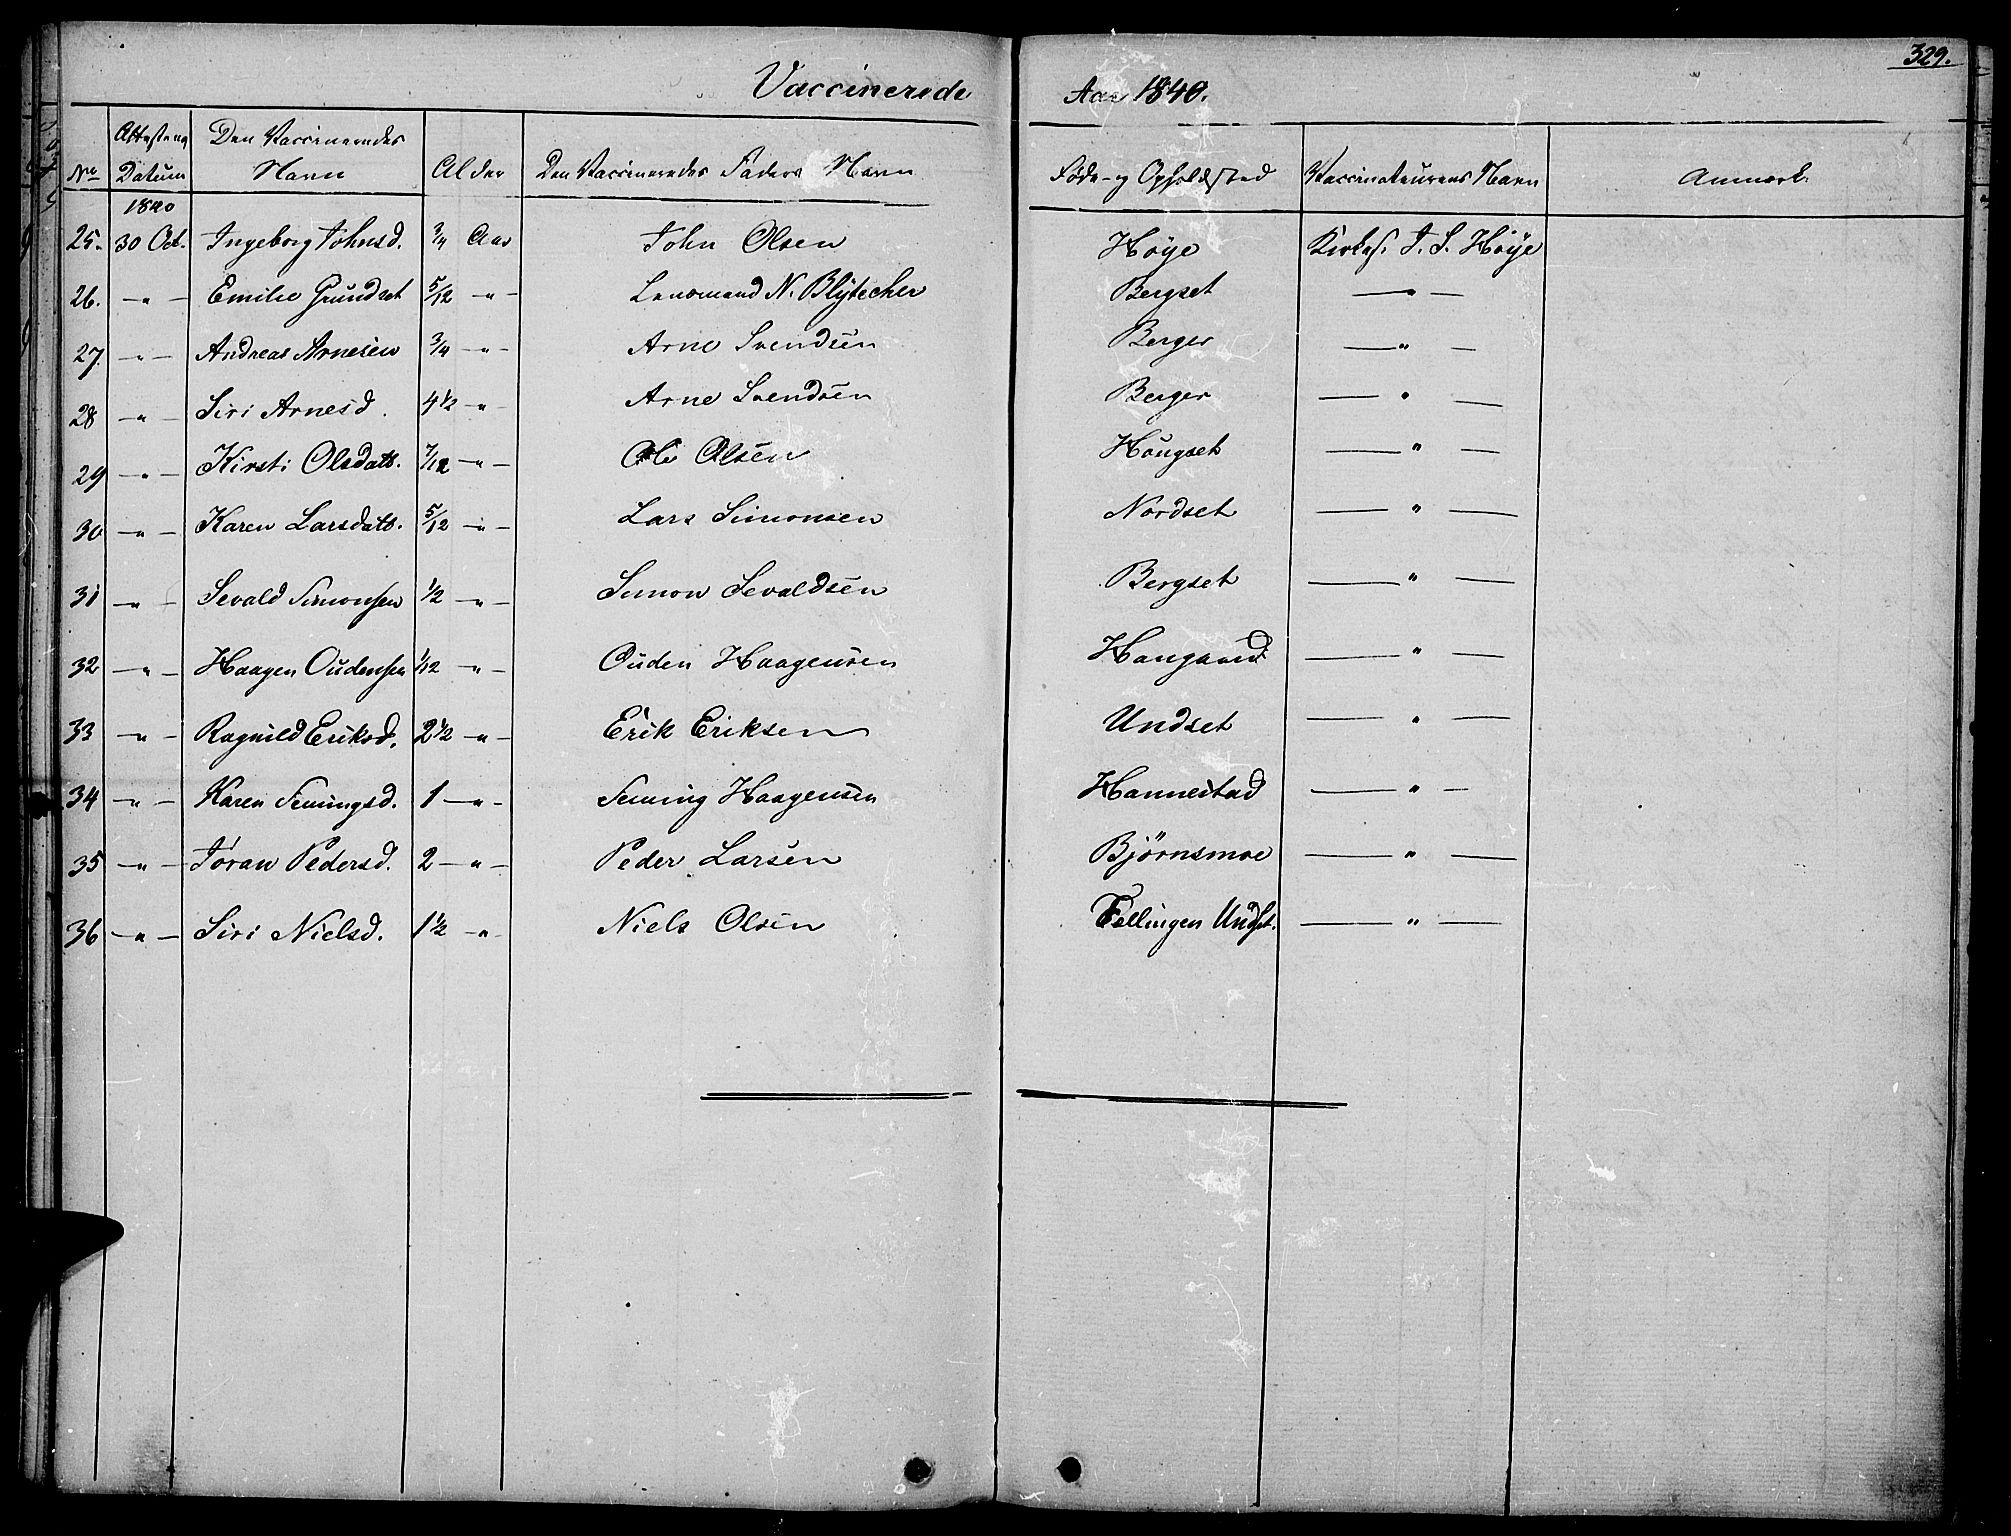 329.
Vaccinerede Aar 1840.
No Attestens Datum Den Vaccineredes Navn Alder Den Vaccineredes Faders Navn Føde- og Opholdsted Vaccinateurens Navn Anmærk.
1840
25. 30 Oct. Ingeborg Johnsd. 3/4 Aar John Olsen Høye Kirkes. J. S. Høye
26. — " — Emilie Grundset 5/12 — " — Lensmand N. Blÿtecher Bergset — " —
27. — " — Andreas Arnesen 3/4 — " — Arne Svendsen Berger — " —
28 — " — Siri Arnesd. 4 1/2 — " — Arne Svendsen Berger — " —
29 — " — Kirsti Olsdatt. 7/12 — " — Ole Olsen Hougset — " —
30 — " — Karen Larsdatt. 5/12 — " — Lars Simonsen Nordset — " —
31 — " — Sevald Simonsen 1/2 — " — Simon Sevaldsen Bergset — " —
32 — " — Haagen Oudensen 1/12 — " — Ouden Haagensen Haugaard — " —
33 — " — Ragnild Eriksd. 2 1/2 — " — Erik Eriksen Undset — " —
34 — " — Karen Semingsd. 1 — " — Seming Haagensen Hannestad — " —
35 — " — Joran Pedersd. 2 — " — Peder Larsen Bjørnsmoe — " —
36 — " — Siri Nielsd. 1 1/2 — " — Niels Olsen Fellingen Undset. — " —